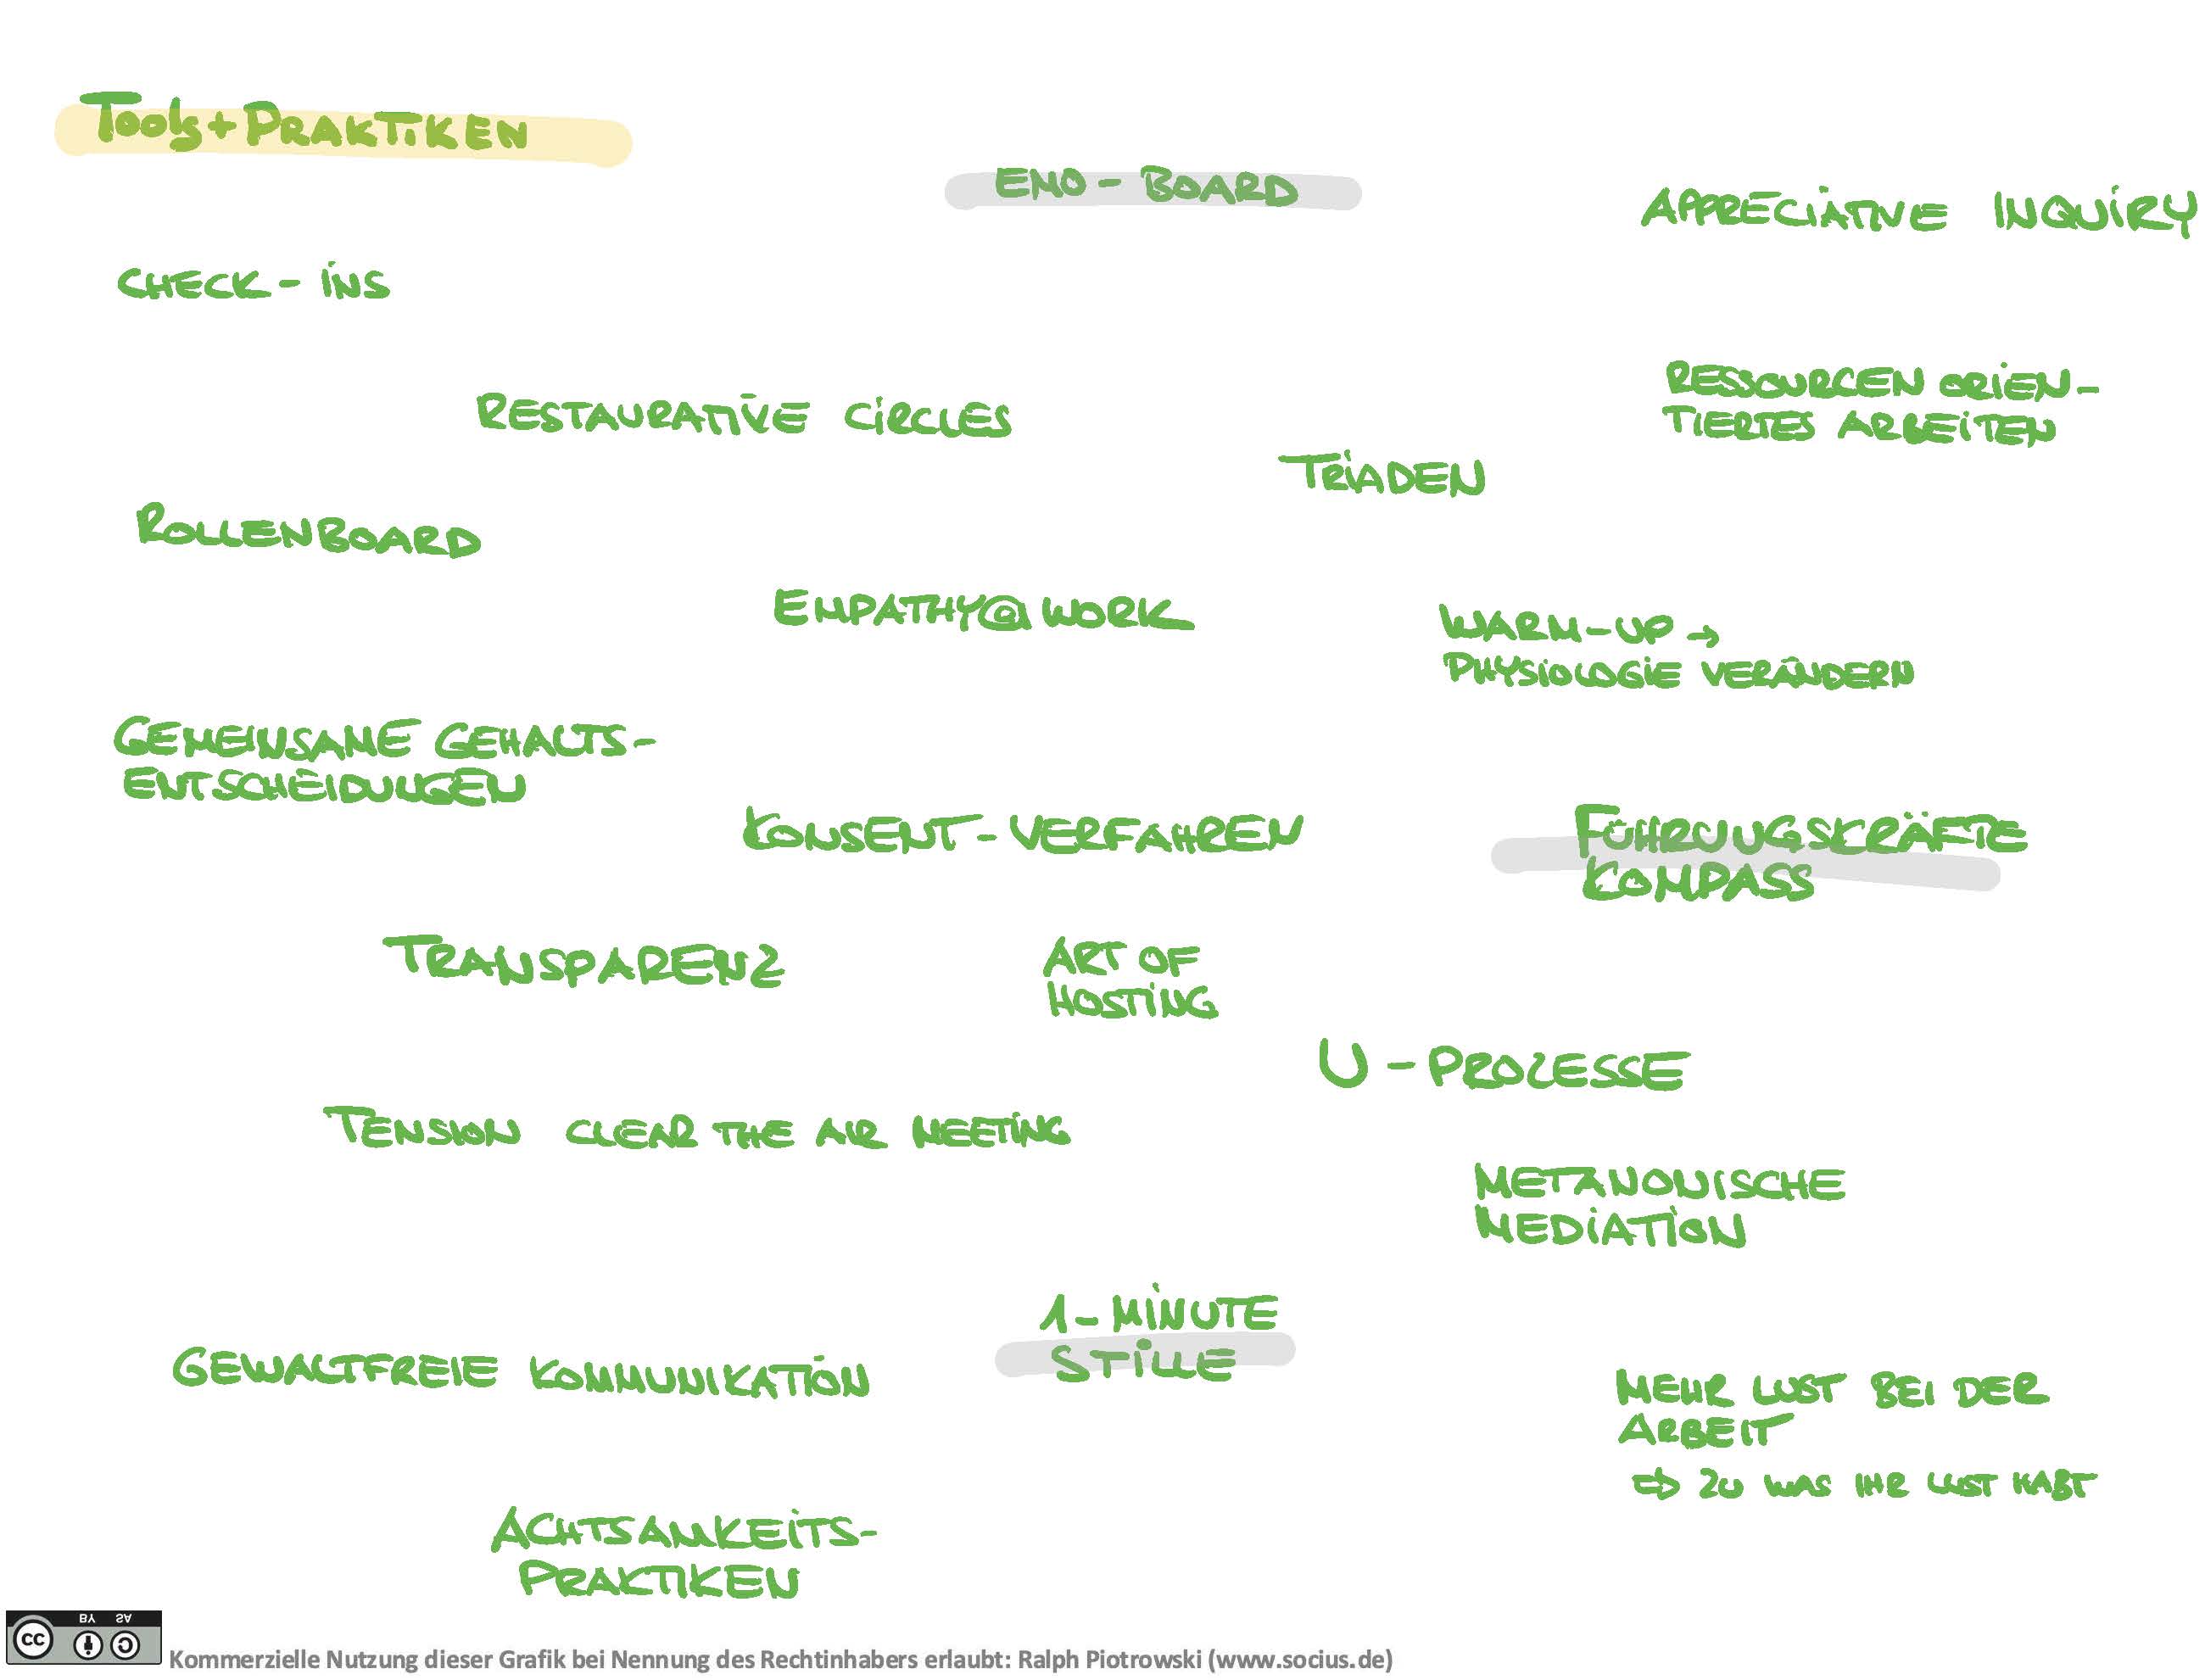 Tools + PRAKTIKEN
EMO - BOARD
APPRECIATIVE INQUIRY
CHECK - INS
RESSOURCEN ORIEN-
TIERTES ARBEITEN
RESTAURATIVE CIRCLES
TRIADEN
ROLLENBOARD
EMPATHY@WORK
WARM-UP →
PHYSIOLOGIE VERÄNDERN
GEMEINSAME GEHALTS-
ENTSCHEIDUNGEN
KONSENT - VERFAHREN
FÜHRUNGSKRÄFTE
KOMPASS
TRANSPARENZ
ART OF
HOSTING
U - PROZESSE
TENSION CLEAR THE AIR MEETING
METANOUISCHE
MEDIATION
1 - MINUTE
STILLE
GEWALTFREIE KOMMUNIKATION
MEHR LUST BEI DER
ARBEIT
⇒ ZU WAS IHR LUST HABT
ACHTSAMKEITS-
PRAKTIKEN
cc BY SA
Kommerzielle Nutzung dieser Grafik bei Nennung des Rechtinhabers erlaubt: Ralph Piotrowski (www.socius.de)